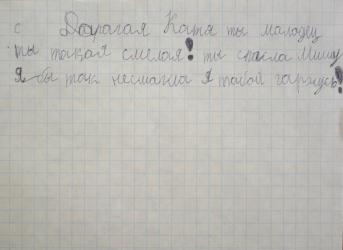 с Дарагая Катя ты маладец
ты такая смелая! ты спасла Мишу
Я бы так несмагла Я табой гаржусь!